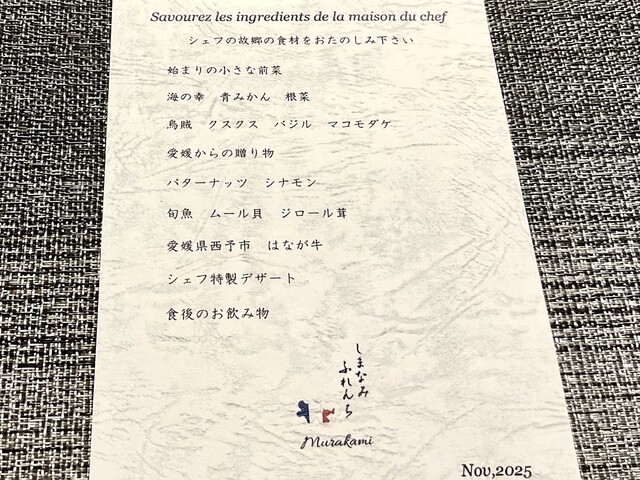 Savourez les ingredients de la maison du chef
シェフの故郷の食材をおたのしみ下さい
始まりの小さな前菜
海の幸　青みかん　根菜
烏賊　クスクス　バジル　マコモダケ
愛媛からの贈り物
バターナッツ　シナモン
旬魚　ムール貝　ジロール茸
愛媛県西予市　はなが牛
シェフ特製デザート
食後のお飲み物
しまなみ
ふれんち
Murakami
Nov,2025